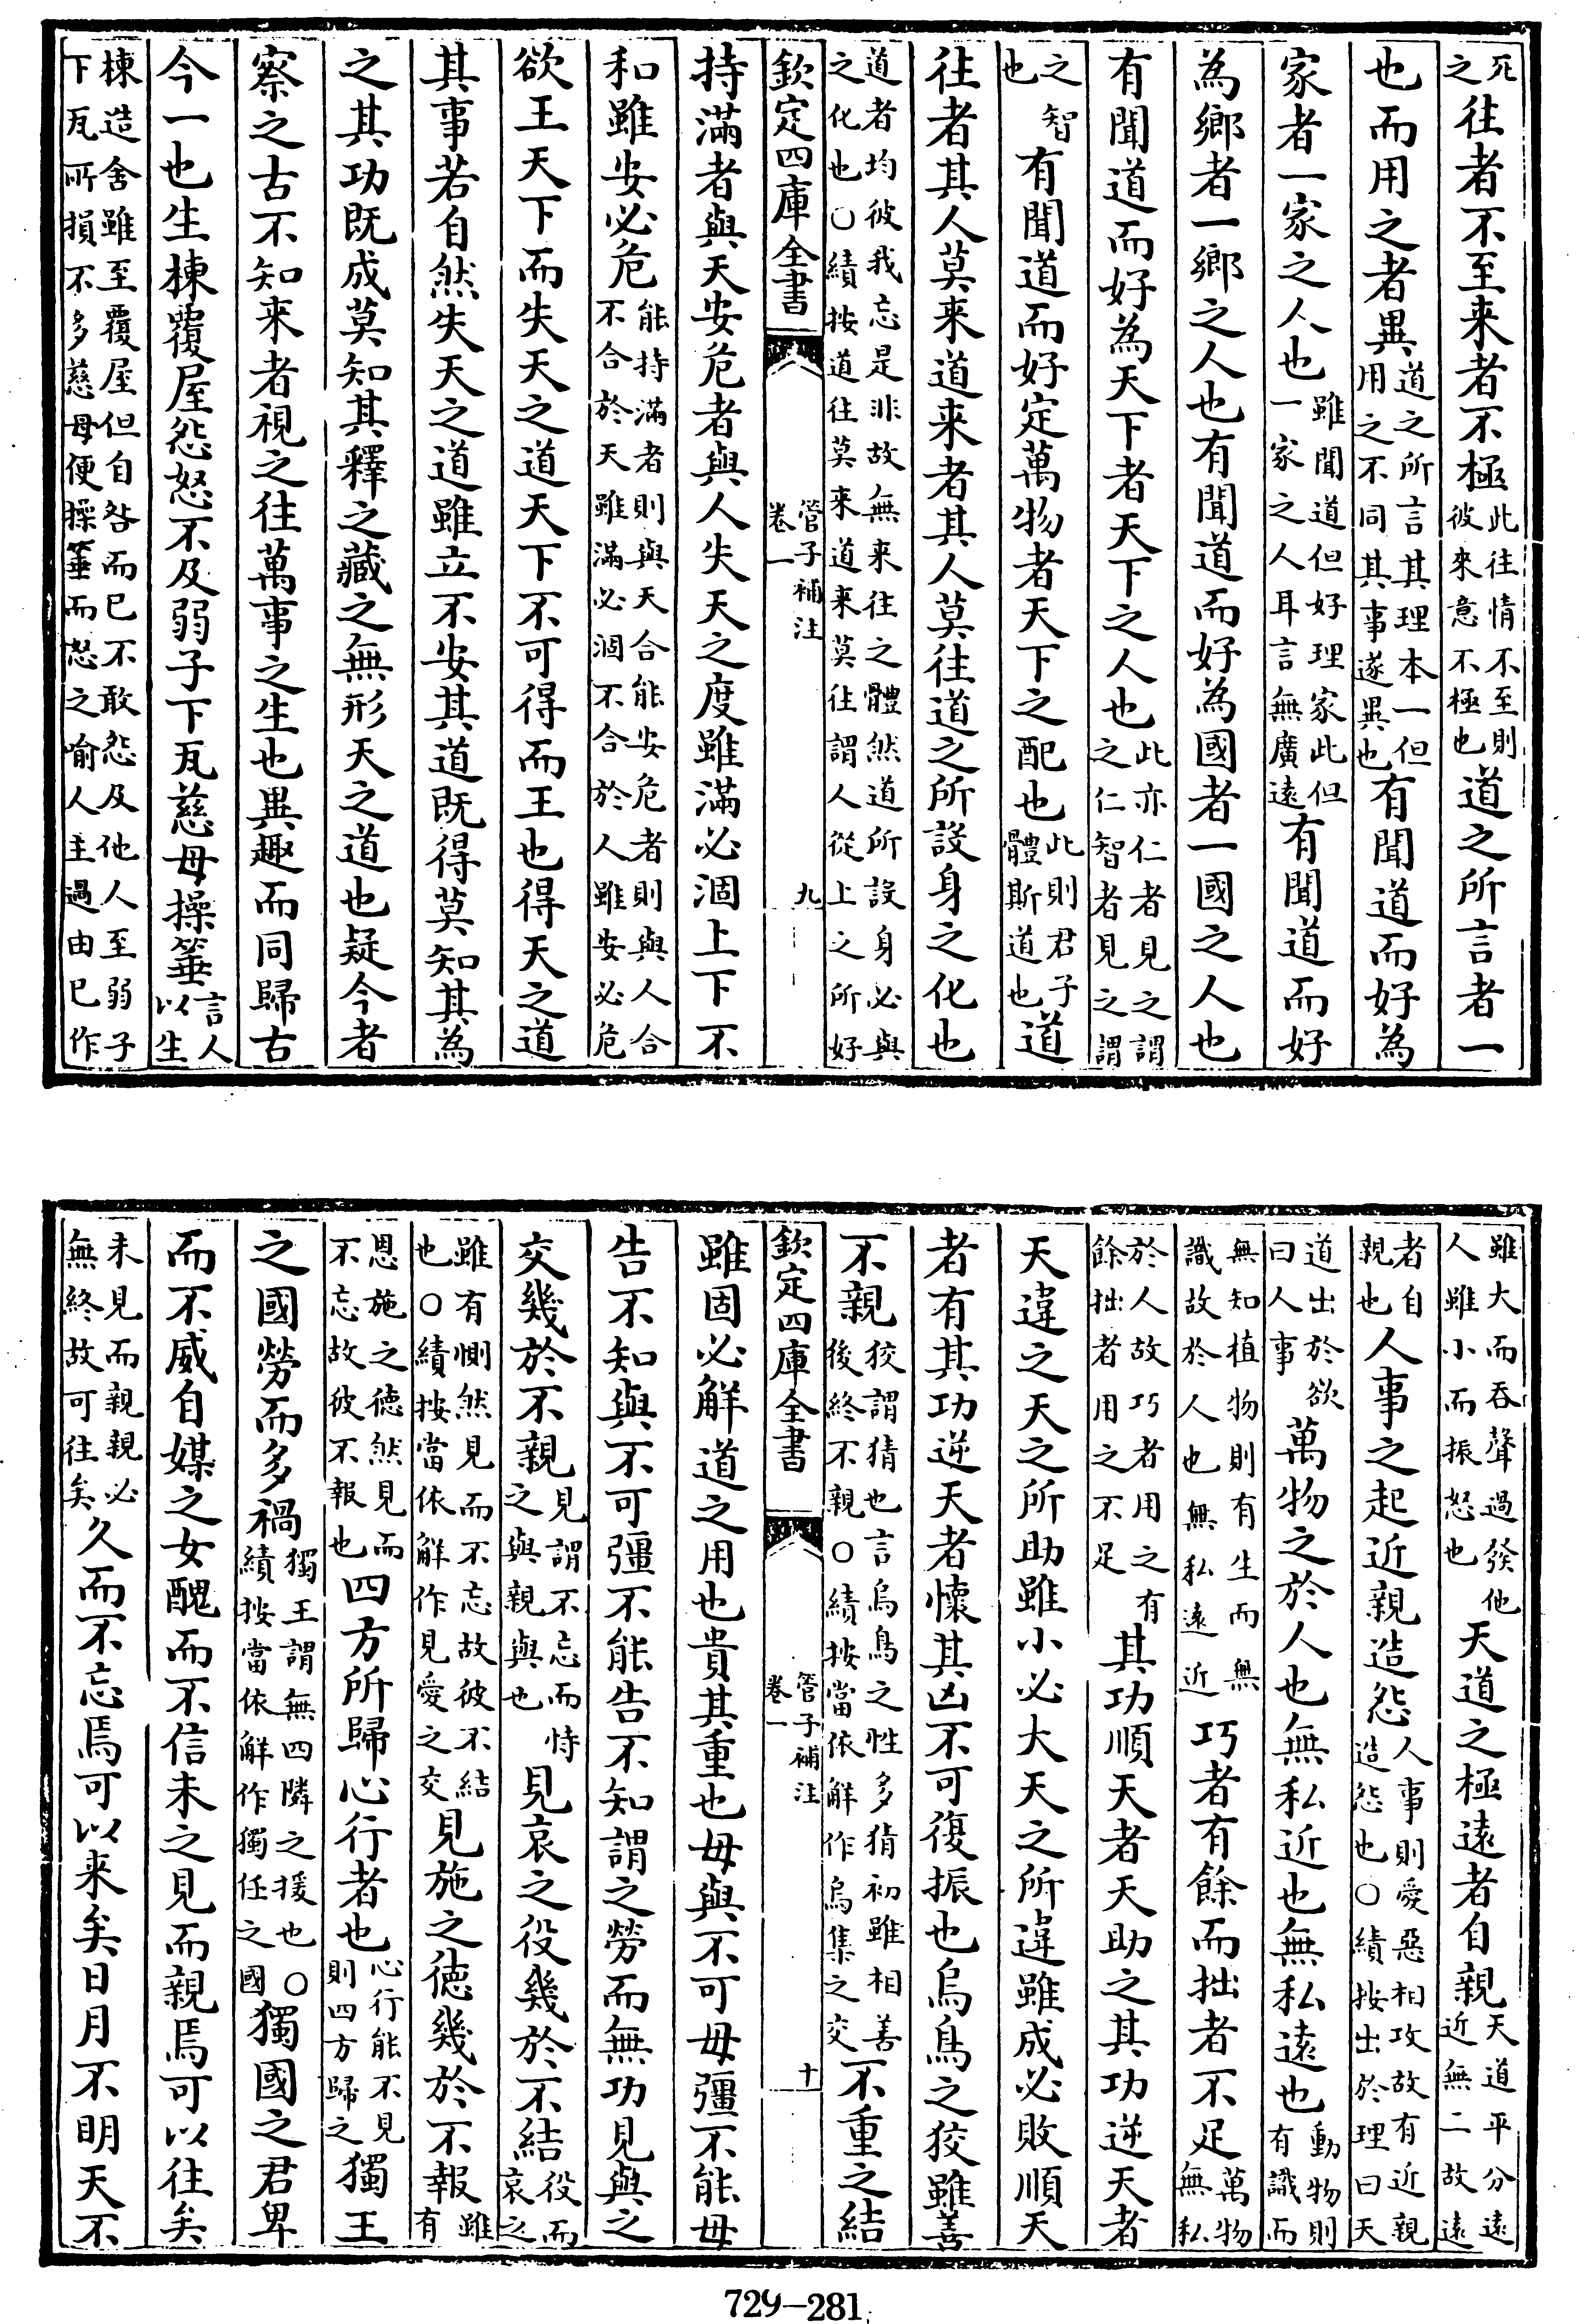 死之往者不至来者不極此往情不至則彼來意不極也道之所言者一
也而用之者異道之所言其理本一但用之不同其事遂異也有聞道而好為
家者一家之人也雖聞道但好理家此但一家之人耳言無廣遠有聞道而好
為鄉者一鄉之人也有聞道而好為國者一國之人也
有聞道而好為天下者天下之人也此亦仁者見之謂之仁智者見之謂
之智也有聞道而好定萬物者天下之配也此則君子體斯道也道
往者其人莫来道来者其人莫往道之所設身之化也
道者均彼我忘是非故無来往之體然道所設身必與之化也○績按道往莫来道来莫往謂人從上之所好
欽定四庫全書 管子補注卷一 九
持滿者與天安危者與人失天之度雖滿必涸上下不
和雖安必危能持滿者則與天合能安危者則與人合不合於天雖滿必涸不合於人雖安必危
欲王天下而失天之道天下不可得而王也得天之道
其事若自然失天之道雖立不安其道既得莫知其為
之其功既成莫知其釋之藏之無形天之道也疑今者
察之古不知来者視之往萬事之生也異趣而同歸古
今一也生棟覆屋怨怒不及弱子下瓦慈母操箠言人以生
棟造舍雖至覆屋但自咎而已不敢怨及他人至弱子下瓦所損不多慈母便操箠而怒之喻人主過由已作
雖大而吞聲過發他人雖小而振怒也天道之極遠者自親天道平分遠近無二故遠
者自親也人事之起近親造怨人事則愛惡相攻故有近親造怨也○績按出於理曰天
道出於欲曰人事萬物之於人也無私近也無私遠也動物則有識而
無知植物則有生而無識故於人也無私遠近巧者有餘而拙者不足萬物無私
於人故巧者用之有餘拙者用之不足其功順天者天助之其功逆天者
天違之天之所助雖小必大天之所違雖成必敗順天
者有其功逆天者懷其凶不可復振也烏鳥之狡雖善
不親狡謂猜也言烏鳥之性多猜初雖相善後終不親○績按當依解作烏集之交不重之結
欽定四庫全書 管子補注卷一 十
雖固必解道之用也貴其重也毋與不可毋彊不能毋
告不知與不可彊不能告不知謂之勞而無功見與之
交幾於不親見謂不忘而恃之與親與也見哀之役幾於不結役而哀之
雖有惻然見而不忘故彼不結也○績按當依解作見愛之交見施之德幾於不報雖有
恩施之德然見而不忘故彼不報也四方所歸心行者也心行能不見則四方歸之獨王
之國勞而多禍獨王謂無四隣之援也○績按當依解作獨任之國獨國之君卑
而不威自媒之女醜而不信未之見而親焉可以往矣
未見而親親必無終故可往矣久而不忘焉可以来矣日月不明天不
729—281